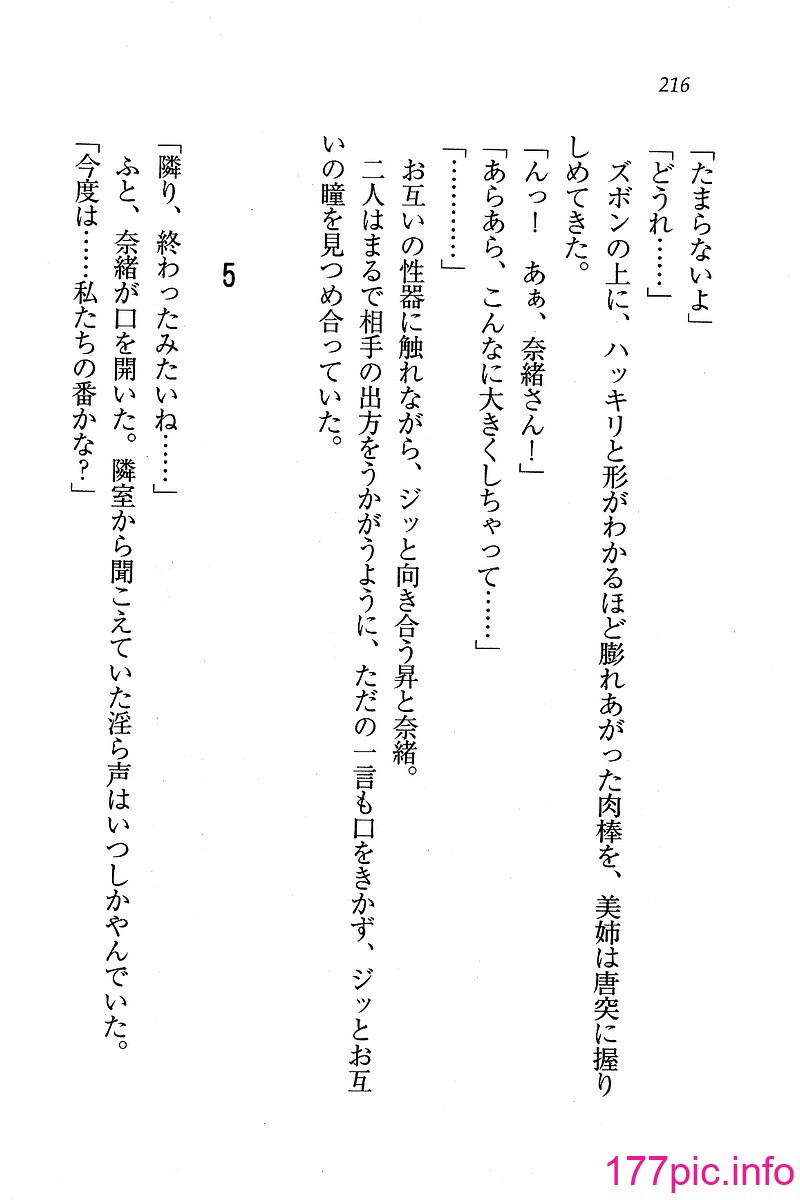 216
「たまらないよ」
「どうれ……」
ズボンの上に、ハッキリと形がわかるほど膨れあがった肉棒を、美姉は唐突に握り
しめてきた。
「んっ！　あぁ、奈緒さん！」
「あらあら、こんなに大きくしちゃって……」
「…………」
お互いの性器に触れながら、ジッと向き合う昇と奈緒。
二人はまるで相手の出方をうかがうように、ただの一言も口をきかず、ジッとお互
いの瞳を見つめ合っていた。
5
「隣り、終わったみたいね……」
ふと、奈緒が口を開いた。隣室から聞こえていた淫ら声はいつしかやんでいた。
「今度は……私たちの番かな？」
177pic.info